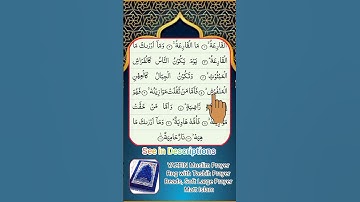 الْقَارِعَةُ ۝ مَا الْقَارِعَةُ ۝ وَمَا أَدْرَىٰكَ مَا
الْقَارِعَةُ ۝ يَوْمَ يَكُونُ النَّاسُ كَالْفَرَاشِ
الْمَبْثُوثِ ۝ وَتَكُونُ الْجِبَالُ كَالْعِهْنِ
الْمَنْفُوشِ ۝ فَأَمَّا مَنْ ثَقُلَتْ مَوَازِينُهُ ۝ فَهُوَ
رَاضِيَةٍ ۝ وَأَمَّا مَنْ خَفَّتْ
فَأُمُّهُ هَاوِيَةٌ ۝ وَمَا أَدْرَىٰكَ مَا
هِيَهْ ۝ نَارٌ حَامِيَةٌ ۝
See in Descriptions
Muslim Prayer
Rug with Tasbih Prayer
Beads, Soft Large Prayer
Mat Islam